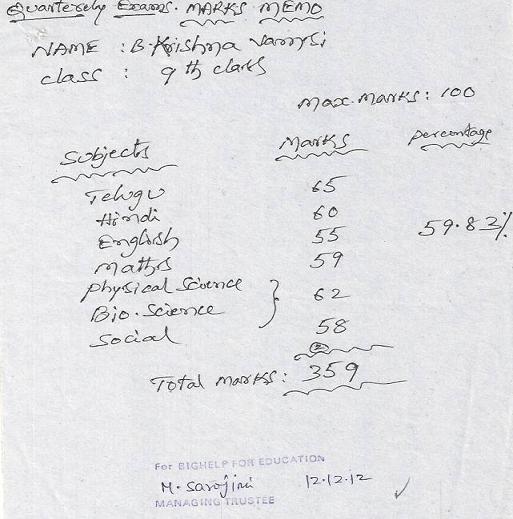 Quarterely Exams. MARKS MEMO
NAME : B. Krishna Vamsi
class : 9th class
Max. Marks: 100
Subjects Marks percentage
Telugu 65
Hindi 60
English 55 59.83%
Maths 59
Physical Science
Bio. Science } 62
Social 58
2
Total Marks: 359
For BIGHELP FOR EDUCATION
M. Sarojini 12.12.12
MANAGING TRUSTEE